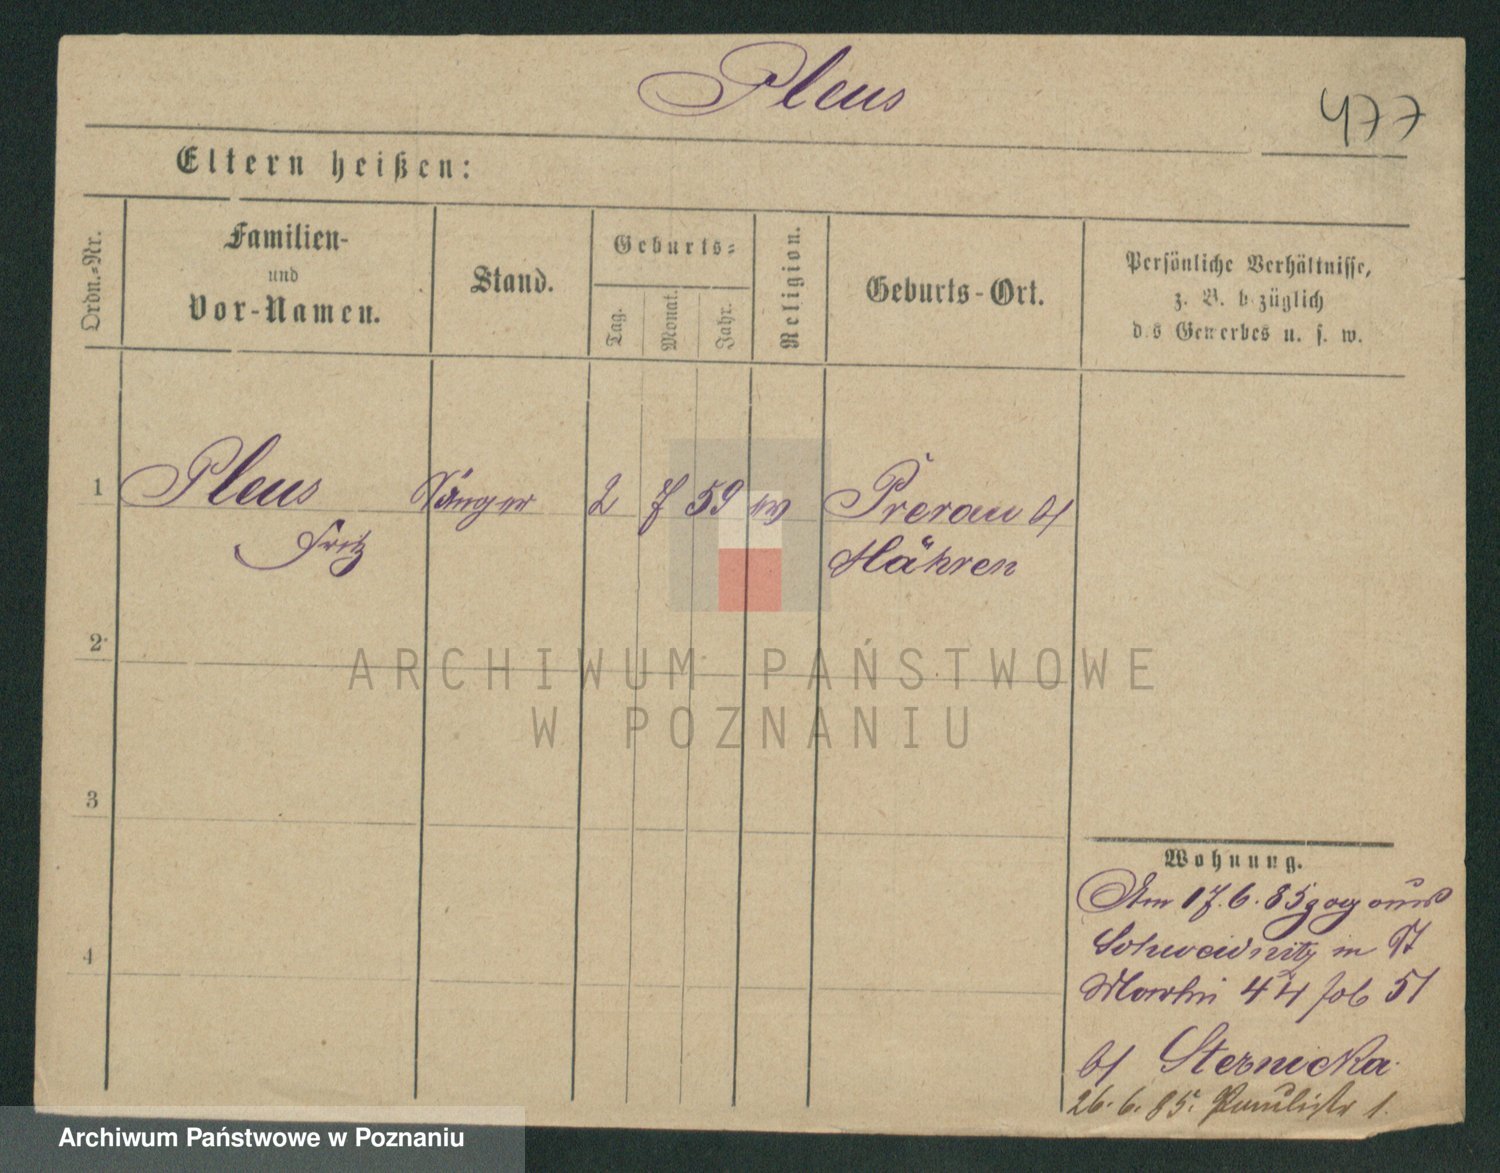 Pleus
477
Eltern heißen:
Ordn.-Nr.
Familien-
und
Vor-Namen.
Stand.
Geburts-
Tag.
Monat.
Jahr.
Religion.
Geburts-Ort.
Persönliche Verhältnisse,
z. B. bezüglich
des Gewerbes u. s. w.
1 Pleus Sänger 2 7 59 Prerau
Fritz Mähren
2
3
4
Wohnung.
Am 17.6.85 zog aus
Schweidnitz in St
Martin 44 51
Sternicka
26.6.85. Paulistr 1.
ARCHIWUM PAŃSTWOWE
W POZNANIU
Archiwum Państwowe w Poznaniu